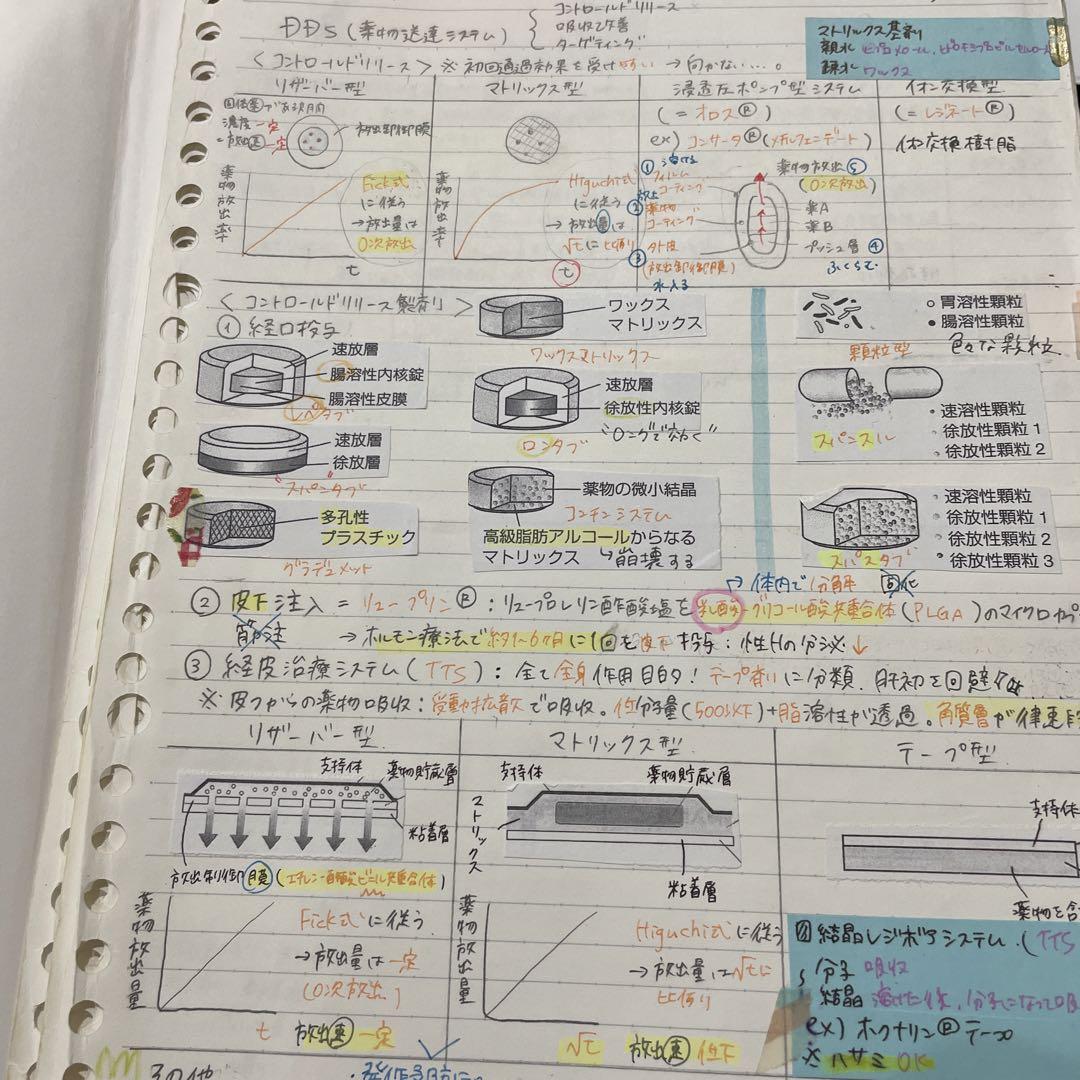 DDS(薬物送達システム)
コントロールドリリース
吸収改善
ターゲティング
マトリックス基剤
親水 ヒプロメロース、ヒドロキシプロピルセルロース
疎水 ワックス
<コントロールドリリース> ※初回通過効果を受けやすい→向かない…。
リザーバー型
固体(薬)である期間
濃度一定
=放出(速)一定
放出制御膜
薬物放出率
Fick式
に従う
→放出量は
0次放出
t
マトリックス型
薬物放出率
Higuchi式
に従う
→放出量は
√tに比例
t
浸透圧ポンプ型システム
(=オロス®)
ex)コンサータ®(メチルフェニデート)
①溶ける
フィルム
コーティング
②薬物
コーティング
外皮
③(放出制御膜)
水入る
薬物放出⑤
(0次放出)
薬A
薬B
プッシュ層④
ふくらむ
イオン交換型
(=レジネート®)
イオン交換樹脂
<コントロールドリリース製剤>
①経口投与
速放層
腸溶性内核錠
腸溶性皮膜
レペタブ
速放層
徐放層
"スパンタブ"
多孔性
プラスチック
グラデュメット
ワックス
マトリックス
ワックスマトリックス
速放層
徐放性内核錠
"ロングで効く"
ロンタブ
薬物の微小結晶
コンチンシステム
高級脂肪アルコールからなる
マトリックス
↳崩壊する
○胃溶性顆粒
●腸溶性顆粒
顆粒型
色々な顆粒
・速溶性顆粒
・徐放性顆粒 1
・徐放性顆粒 2
スパンスル
・速溶性顆粒
・徐放性顆粒 1
・徐放性顆粒 2
・徐放性顆粒 3
スパスタブ
体内で分解
②皮下注入=リュープリン®:リュープロレリン酢酸塩を乳酸-グリコール酸共重合体(PLGA)のマイクロカプ
筋注
→ホルモン療法で約1〜6ヶ月に1回を皮下投与:性Hの分泌↓
③経皮治療システム(TTS):全て全身作用目的!テープ剤に分類、肝初を回避
※皮フからの薬物吸収:受動拡散で吸収。低分子量(500以下)+脂溶性が透過。角質層が律速
リザーバー型
支持体
薬物貯蔵層
粘着層
放出制御膜(エチレン-酢酸ビニル共重合体)
薬物放出量
Fick式に従う
→放出量は一定
(0次放出)
t
放出(速)一定
マトリックス型
支持体
薬物貯蔵層
マトリックス
粘着層
薬物放出量
Higuchi式に従う
→放出量は√tに
比例
√t
放出(速)低下
テープ型
支持体
薬物を含
結晶レジボアシステム(TTS
分子 吸収
結晶 溶けた後、分子になって吸
ex)ホクナリン®テープ
※ハサミOK
その他